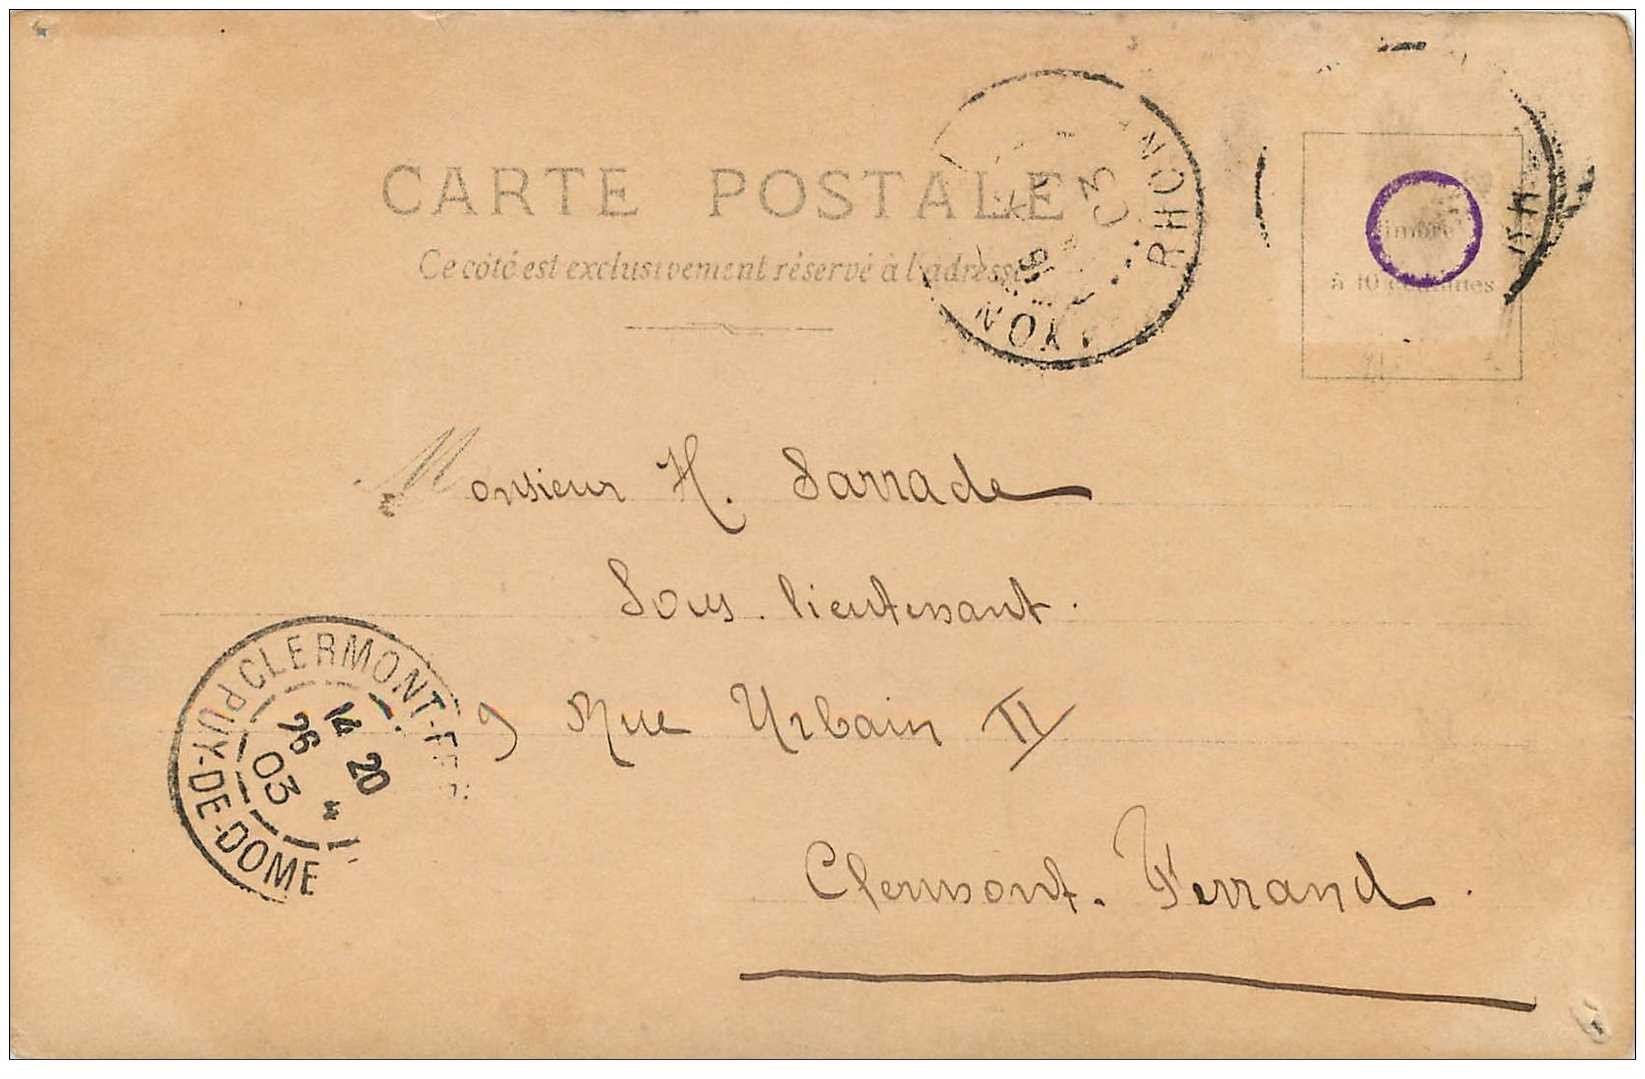 CARTE POSTALE
Ce côté est exclusivement réservé à l'adresse
LYON
RHONE
03
Timbre
à 10 centimes
Monsieur H. Sarrade
Sous-lieutenant.
9 Rue Urbain II
Clermont-Ferrand.
CLERMONT-FER
PUY-DE-DOME
14 20
26
03